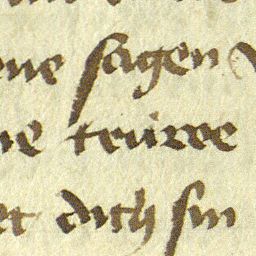 ne sagen
ne trúwe
et dich sin